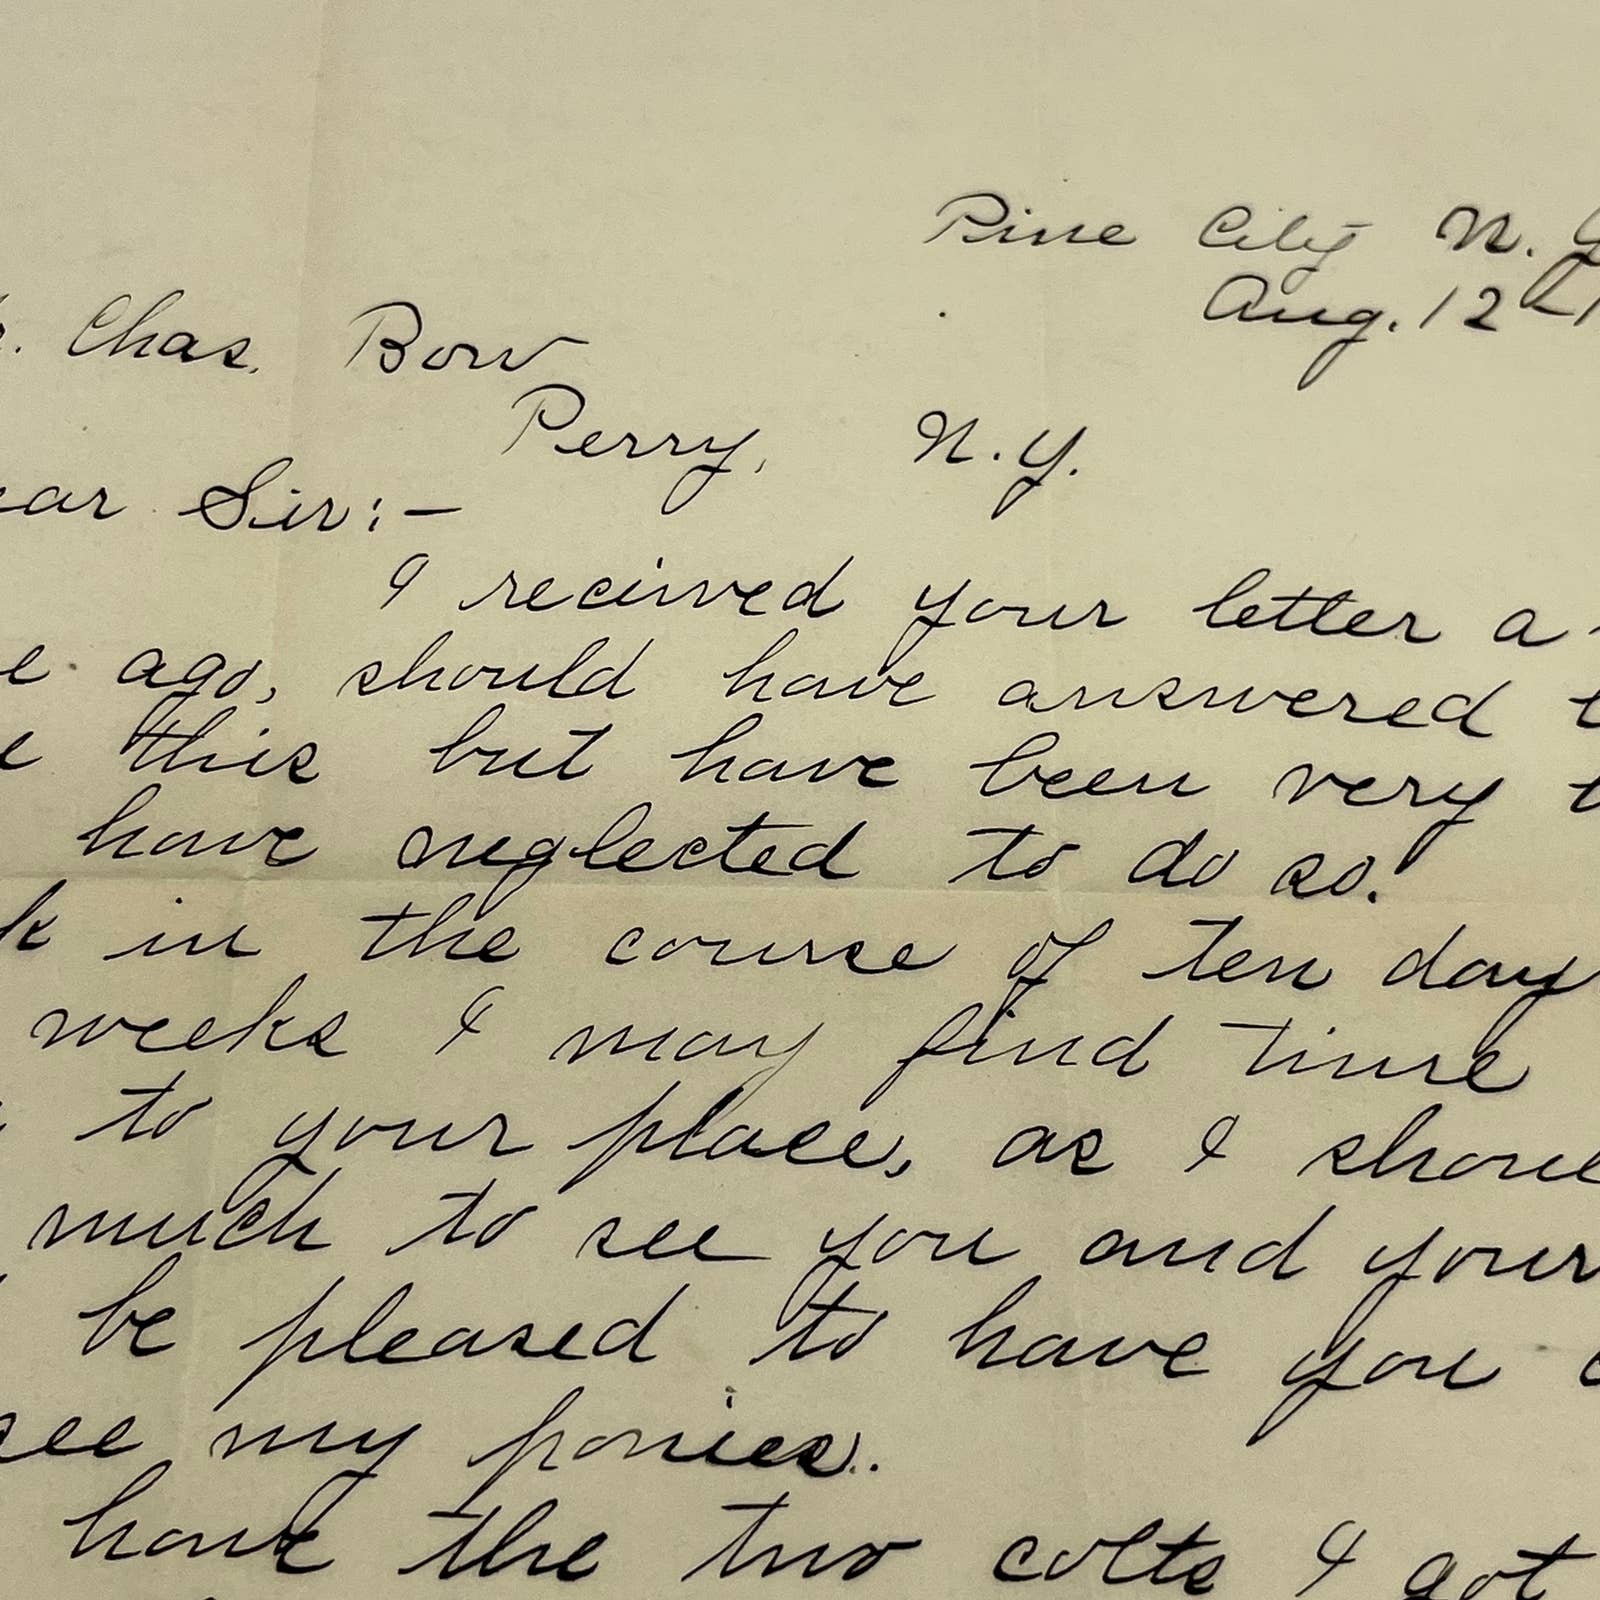 Pine City N. Y
Aug. 12th
r. Chas. Bow
Perry, N.Y.
ear Sir:-
I recieved your letter a
e ago, should have answered
e this but have been very
have neglected to do so.
k in the course of ten day
weeks I may find time
to your place, as I shoul
much to see you and your
be pleased to have you
see my ponies.
have the two colts I got